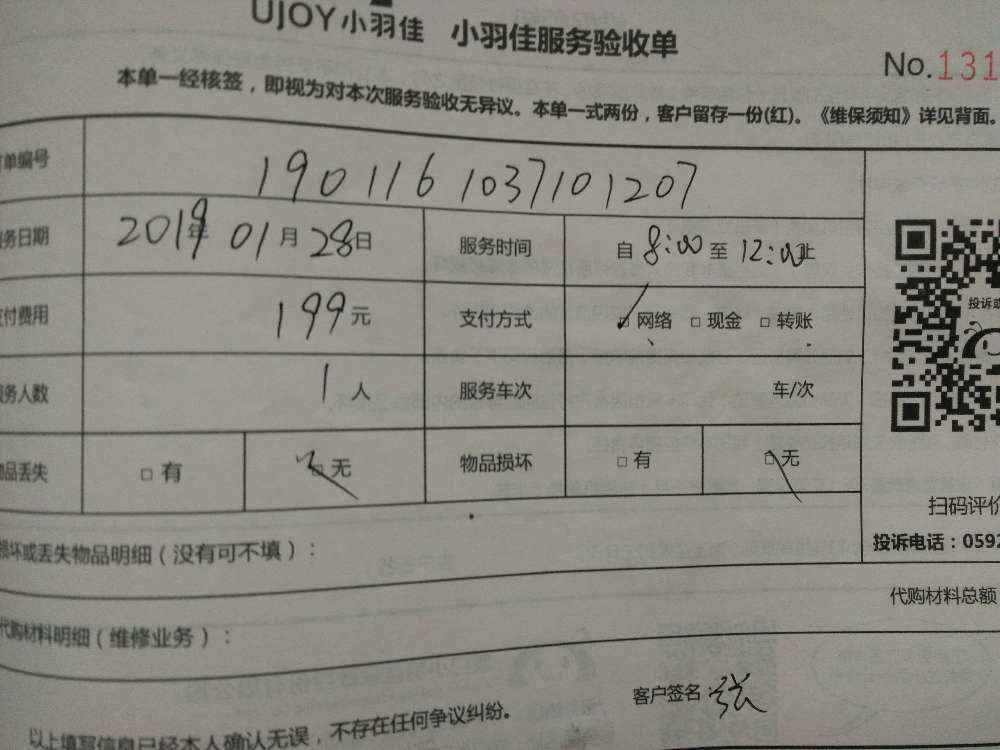 UJOY小羽佳 小羽佳服务验收单
No.131
本单一经核签，即视为对本次服务验收无异议。本单一式两份，客户留存一份(红)。《维保须知》详见背面。
单编号 190116 1037101207
务日期 2019年 01月28日 服务时间 自 8:00 至 12:00止
付费用 199元 支付方式 □ 网络 □ 现金 □ 转账
务人数 1人 服务车次 车/次
物品丢失 □ 有 □ 无 物品损坏 □ 有 □ 无
投诉或
扫码评价
投诉电话：0592
损坏或丢失物品明细（没有可不填）：
代购材料总额
代购材料明细（维修业务）：
客户签名：张
以上填写信息已经本人确认无误，不存在任何争议纠纷。